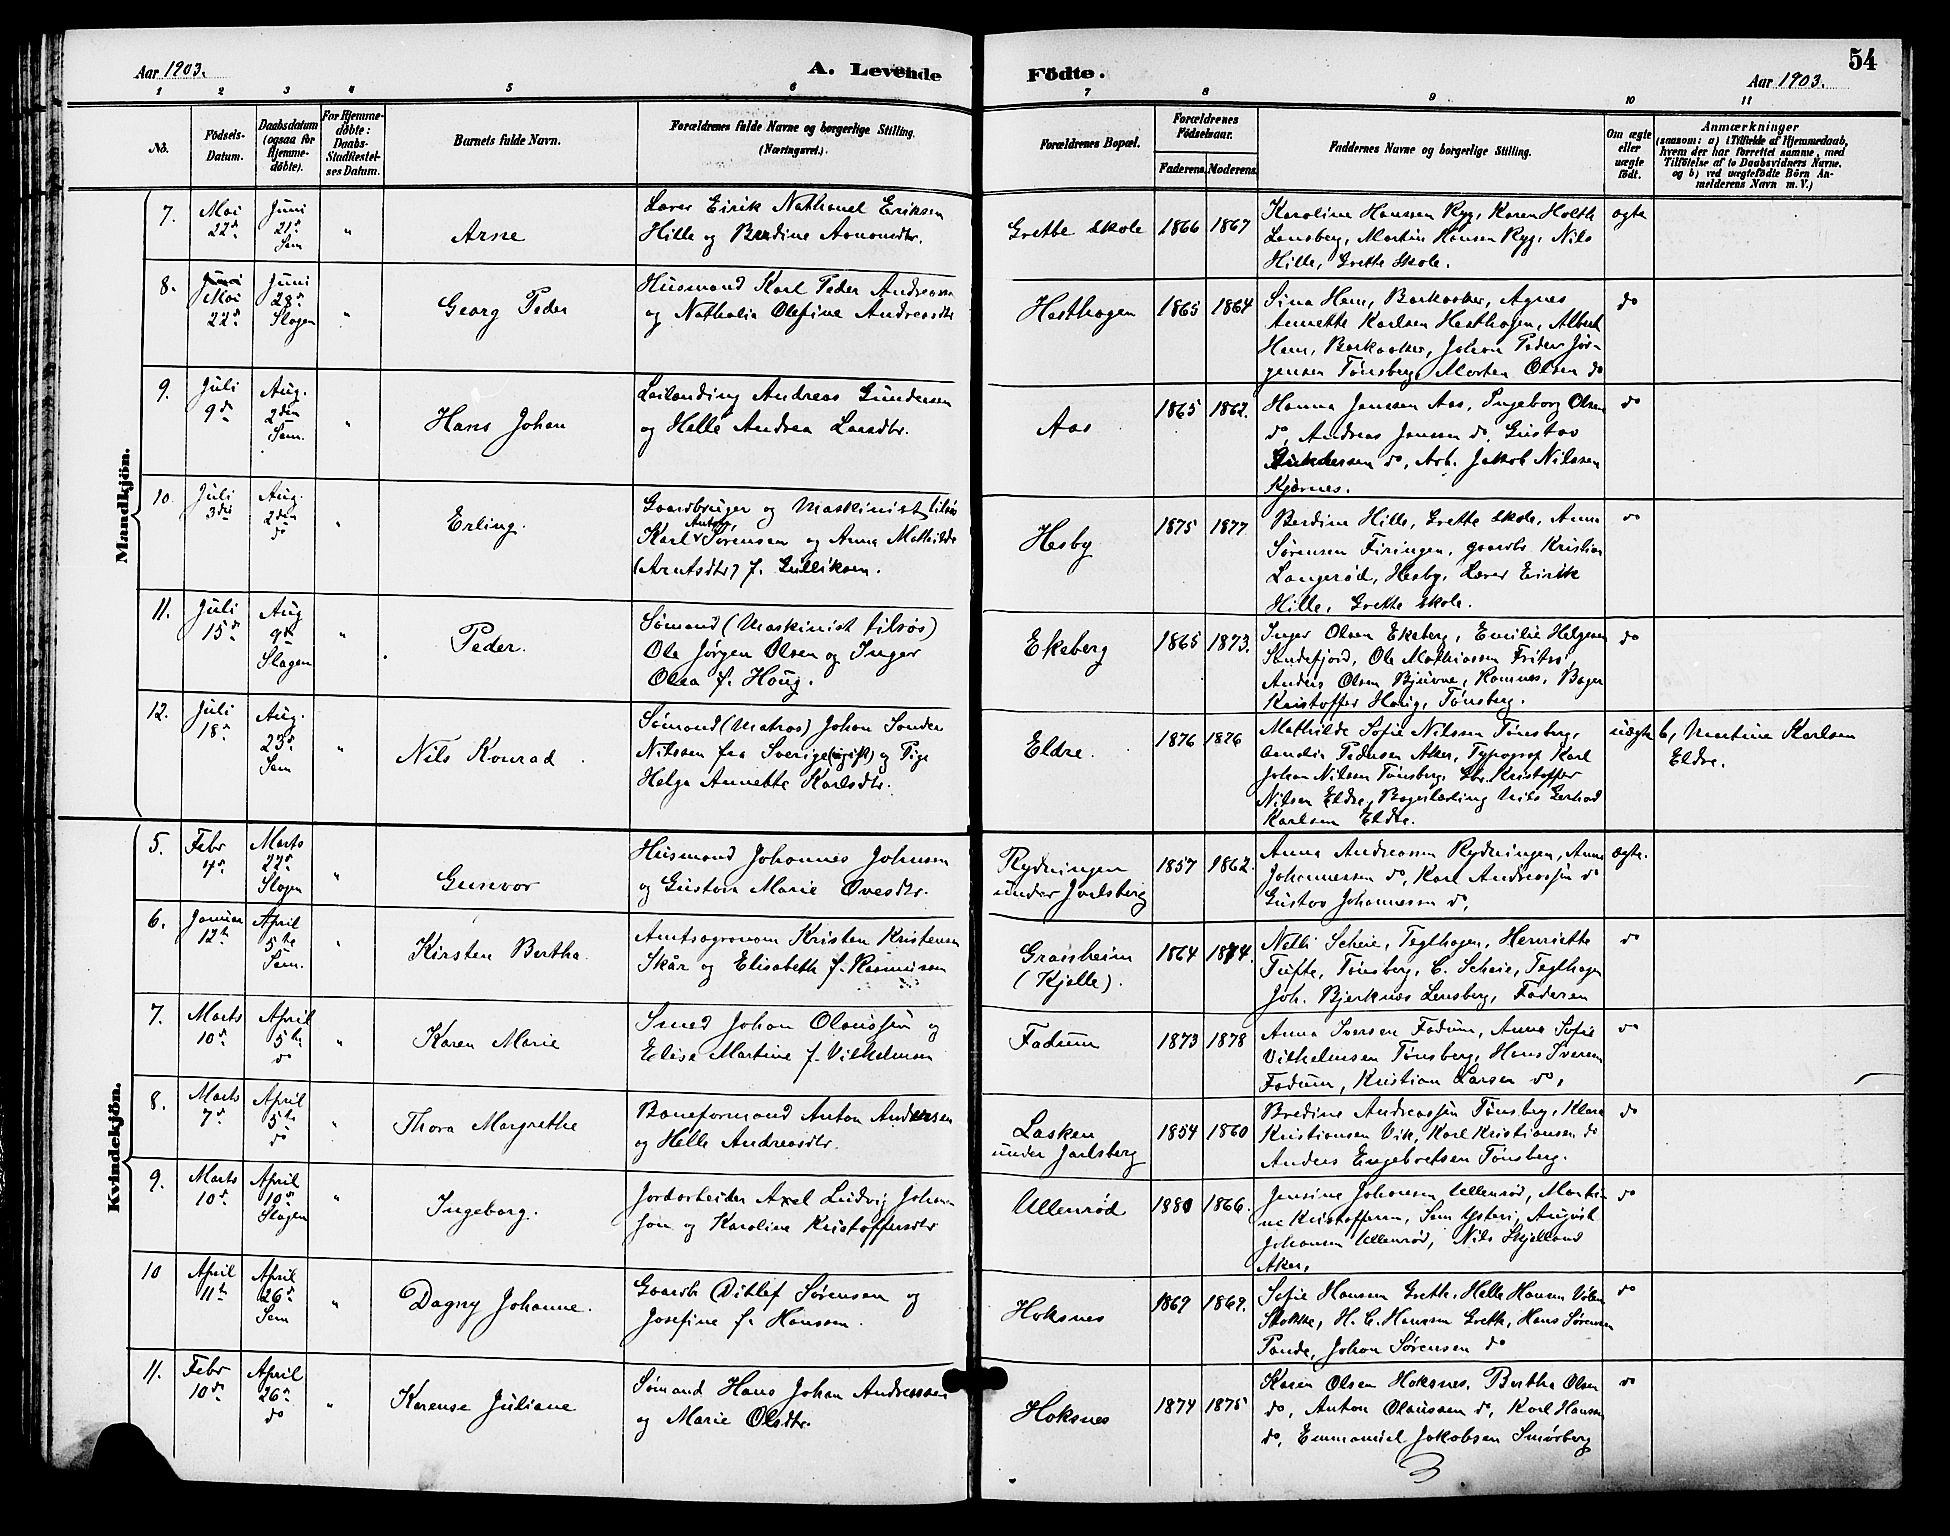 Aar 1903.
A. Levende
Födte.
54
Aar 1903.
1 2 3 4 5 6 7 8 9 10 11
No.
Födsels-
Datum.
Daabsdatum
(ogsaa for
Hjemme-
døbte).
For Hjemme-
døbte:
Daabs-
Stadfæstel-
ses Datum.
Barnets fulde Navn.
Forældrenes fulde Navne og borgerlige Stilling.
(Næringsvei.)
Forældrenes Bopæl.
Forældrenes
Födselsaar.
Faderens. Moderens.
Faddernes Navne og borgerlige Stilling.
Om ægte
eller
uægte
født.
Anmærkninger
(saasom: a) i Tilfælde af Hjemmedaab,
hvem der har forrettet samme, med
Tilföielse af to Daabsvidners Navne.
og b) ved uægtefödte Börn An-
melderens Navn m. V.)
Mandkjön.
7.
Mai
22de
Juni
21de
Sem
"
Arne
Lærer Eirik Nathanel Eriksen
Hille og Berdine
Grette skole
1866 1867
Karoline Hanssen Ryg, Karen Holth
Lensberg, Martin Hansen Ryg, Nils
Hille, Grette Skole.
ægte
8.
Mai
22de
Juni
28de
Slagen
"
Georg Peder
Husmand Karl Peder Andreassen
og Nathalia Olefine Andreasdtr
Hesthagen
1865 1864
Sina Hem, Barkaaker, Agnes
Annette Karlsen Hesthagen, Albert
Hem, Barkaaker, Johan Peder Jør-
gensen Tønsberg, Morten Olsen do
do
9.
Juli
9de
Aug.
2den
Sem.
"
Hans Johan
Leilænding Andreas Gundersen
og Helle Andrea Larsdtr.
Aas
1865 1862.
Hanna Janssen Aas, Ingeborg Olsen
do, Andreas Jansen do, Gustav
Gundersen do, Arb. Jakob Nilssen
Kjærnes.
do
10.
Juli
3die
Aug.
2den
do
"
Erling.
Gaardbruger og Maskinist tilsøs
Karl Anton Sørensen og Anna Mathilde
(Arntsdtr) f. Gulliksen.
Hesby
1875 1877
Berdine Hille, Grette skole, Anna
Sørensen Firingen, gaardbr Kristian
Langerød, Hesby, Lærer Eirik
Hille, Grette skole.
do
11.
Juli
15de
Aug
9de
Slagen
"
Peder.
Sømand (Maskinist tilsøs)
Ole Jørgen Olsen og Inger
Olea f. Houg.
Ekeberg
1865 1873.
Inger Olsen Ekeberg, Emilie Helgesen
Sandefjord, Ole Mathiassen
Anders Olsen Bjuvne, Ramnes, Bager
Kristoffer Houg, Tønsberg.
do
12.
Juli
18de
Aug.
23de
Sem
"
Nils Konrad
Sømand (Matros) Johan Sander
Nilssen fra Sverige (ugift) og Pige
Helga Annette Karlsdtr.
Eldre.
1876 1876
Mathilde Sofie Nilssen Tønsberg,
Amelia Pedersen Aker, Typograf Karl
Johan Nilsen Tønsberg, Gbr. Kristoffer
Nilsen Eldre, Bagerlærling Nils Gerhard
Karlsen Eldre.
uægte
b, Martine Karlsen
Eldre.
Kvindekjön.
5.
Febr
4de
Marts
22de
Slagen
"
Gunvor
Husmand Johannes Johnsen
og Gustava Marie Ovesdtr.
Rydningen
under Jarlsberg
1857 1862.
Anna Andreassen Rydningen, Anna
Johannessen do, Karl Andreassen do
Gustav Johannessen do,
ægte.
6.
Januar
12te
April
5te
Sem.
"
Kirsten Bertha.
Amtsagronom Kristen Kristensen
Skår og Elisabeth f. Rasmussen
Granheim
(Kjelle).
1864 1874.
Nelli Scheie, Teglhagen, Henriette
Tufte, Tønsberg, C. Scheie, Teglhagen
Joh. Bjerknæs Lensberg, Faderen
do
7.
Marts
10de
April
5te
do
"
Karen Marie
Smed Johan Olaussen og
Elise Martine f. Vilhelmsen
Fadum
1873 1878
Anna Iversen Fadum, Anna Sofie
Vilhelmsen Tønsberg, Hans Iversen
Fadum, Kristian Larsen do,
do
8.
Marts
7de
April
5te
do
"
Thora Margrethe
Baneformand Anton Andersen
og Helle Andreasdtr.
Lasken
under Jarlsberg
1854 1860
Bredine Andreassen Tønsberg, Klara
Kristiansen Vik, Karl Kristiansen do
Anders Engebretsen Tønsberg.
do
9.
Marts
10de
April
10de
Slagen
"
Ingeborg.
Jordarbeider Axel Ludvig Johans-
son og Karoline Kristoffersdtr
Ullenrød
1880 1866.
Jensine Johansen Ullenrød, Marti-
ne Kristoffersen, Sem Ysteri, August
Johansen Ullenrød, Nils Skjelland
Aker,
do
10
April
11te
April
26de
Sem
"
Dagny Johanne.
Gaardb. Ditlef Sørensen og
Josefine f. Hanssen.
Hoksnes
1869 1869.
Sofie Hansen Greth, Helle Hansen
Stokke, H. C. Hansen Greth, Hans Sørensen
Pande, Johan Sørensen do
do
11.
Febr
10de
April
26de
do
"
Karense Juliane
Sømand Hans Johan Andreassen
og Marie Olsdtr.
Hoksnes
1874 1875
Karen Olsen Hoksnes, Bertha Olsen
do, Anton Olaussen do, Karl Hansen
do, Emmanuel Jakobsen Smørberg
do